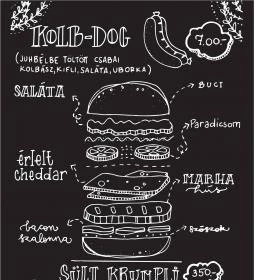 KOLB-DOG
7.00.-
(JUHBÉLBE TÖLTÖTT CSABAI
KOLBÁSZ, KIFLI, SALÁTA, UBORKA)
SALÁTA
BUCI
Paradicsom
érlelt
cheddar
MARHA
hús
bacon
szalonna
szószok
SÜLT KRUMPLI
350.-